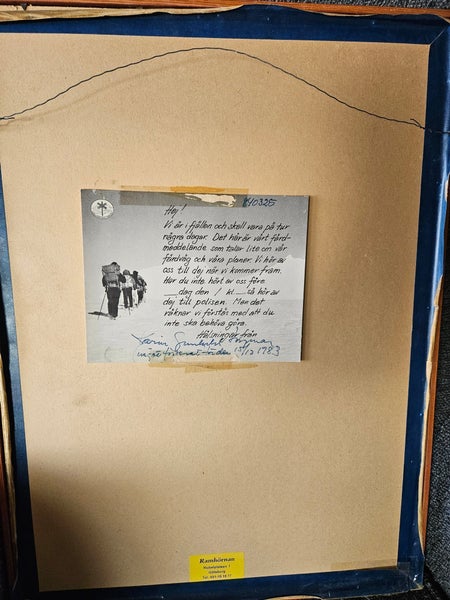 840325
Hej!
Vi är i fjällen och skall vara på tur
några dagar. Det här är vårt färd-
meddelande som talar lite om vår
färdväg och våra planer. Vi hör av
oss till dej när vi kommer fram.
Har du inte hört av oss före
dag den / kl så hör av
dej till polisen. Men det
räknar vi förstås med att du
inte ska behöva göra.
Hälsningar från
1783
Ramhörnan
Göteborg